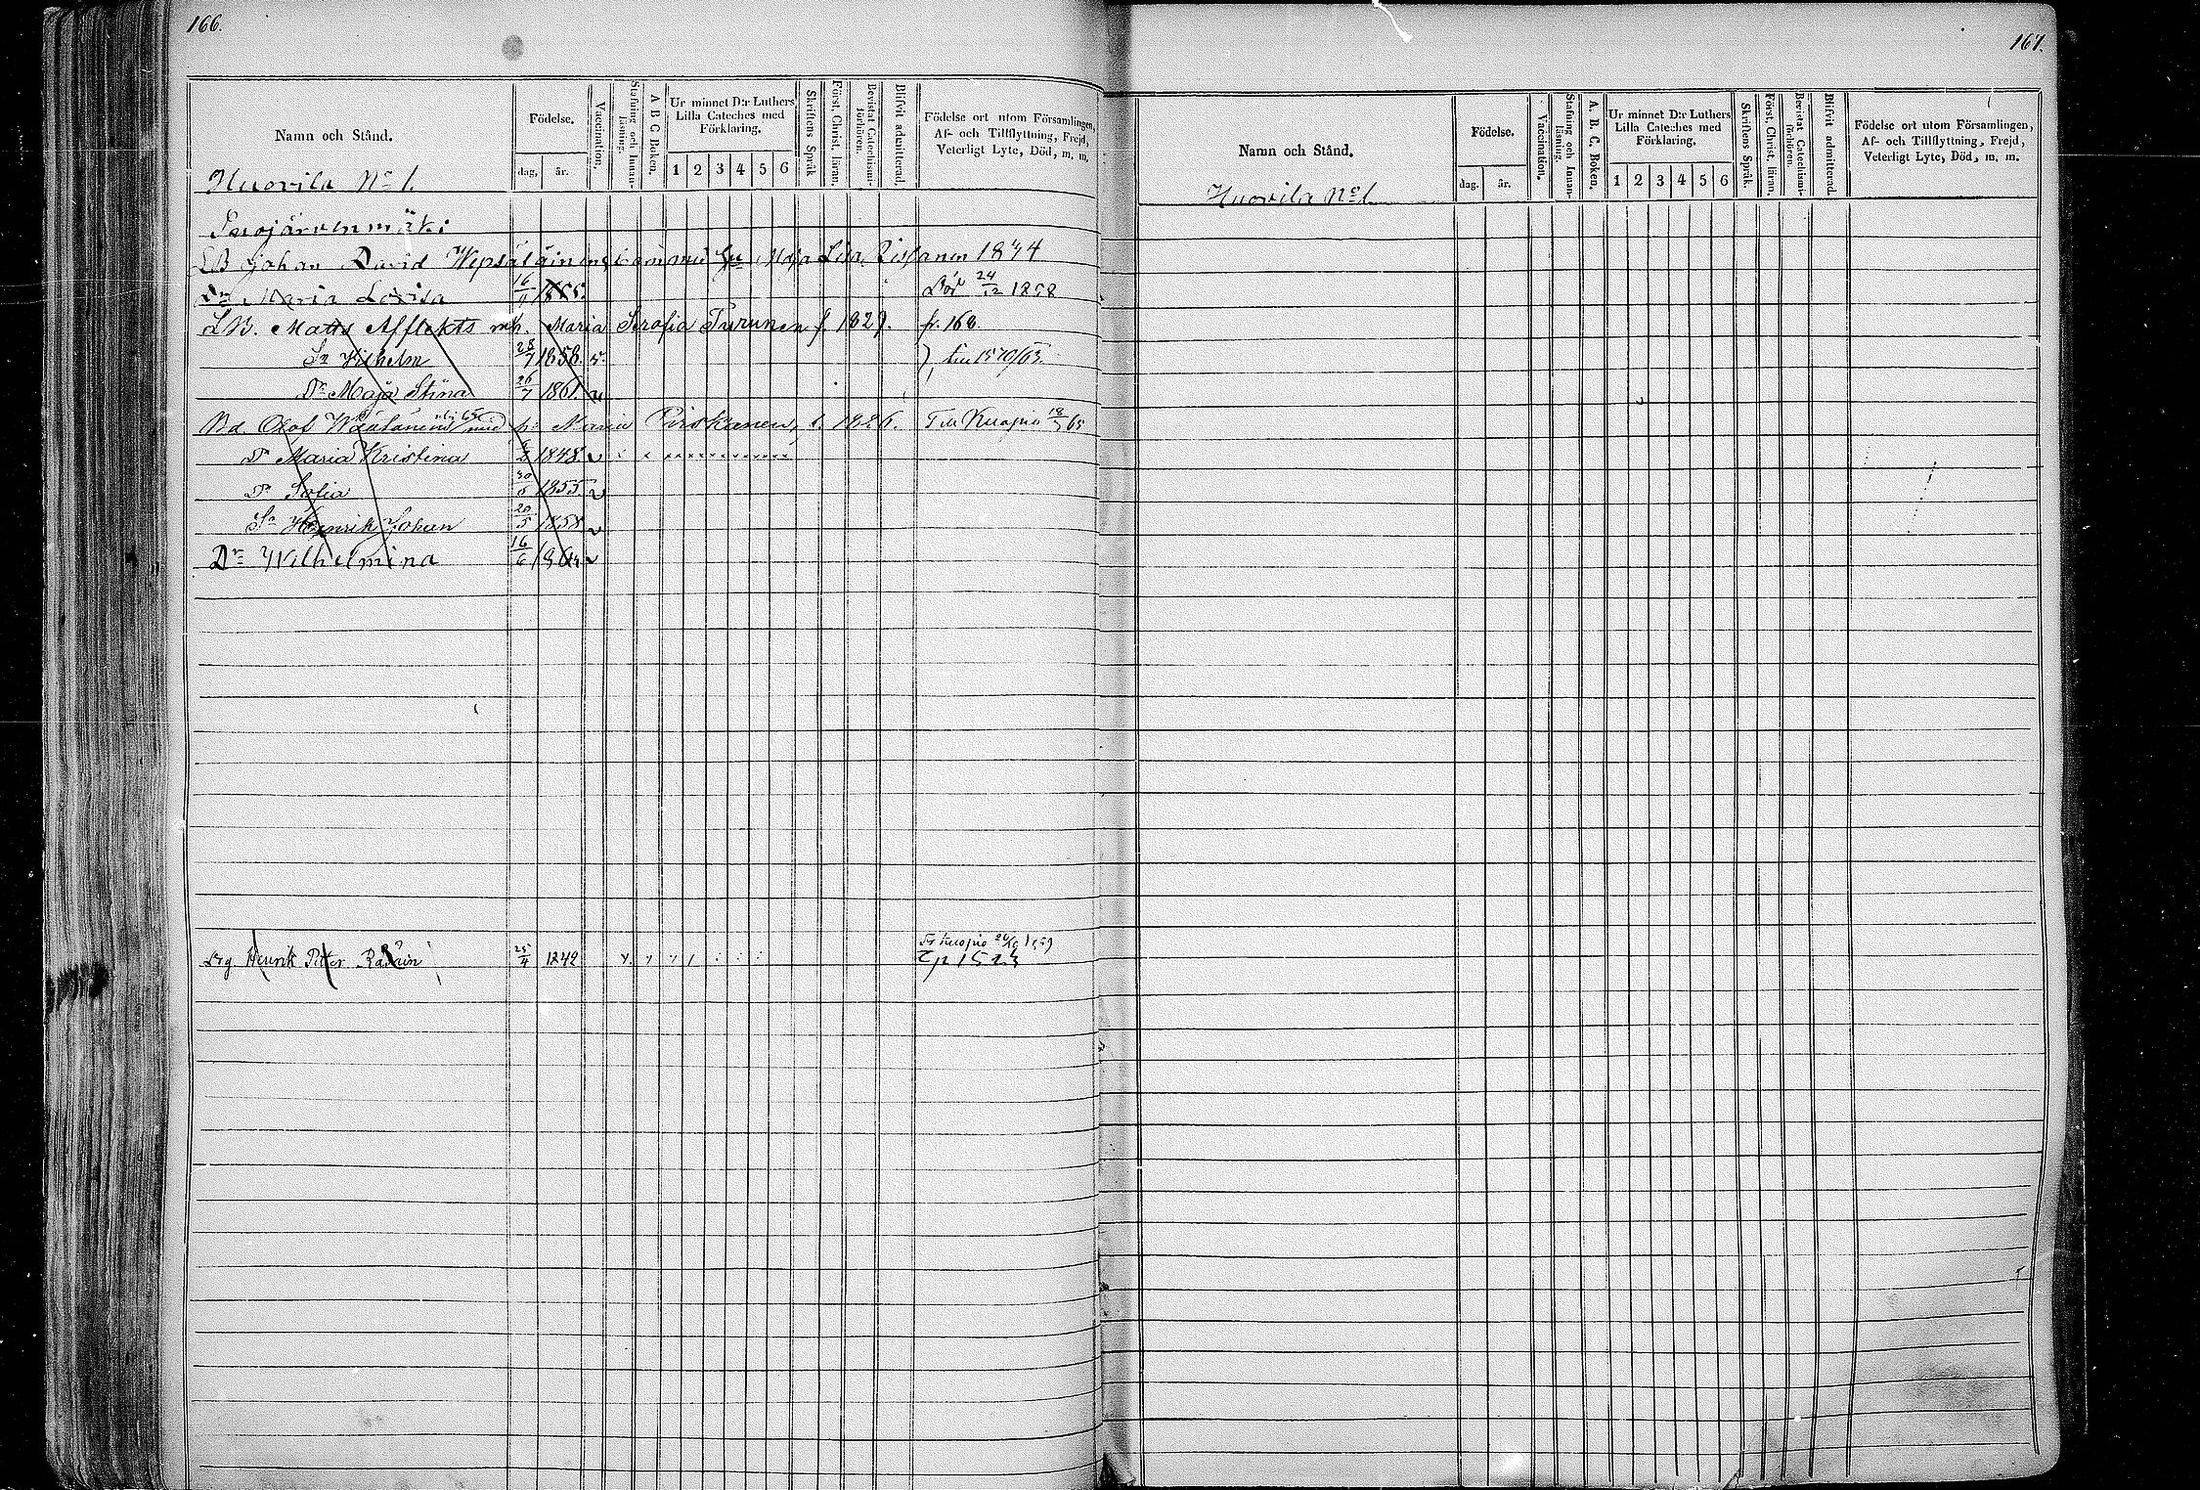 166.
Namn och Stånd.
Födelse.
dag. år.
Vaccination.
Stafning och Innan-läsning.
A B C Boken.
Ur minnet D:r Luthers Lilla Cateches med Förklaring.
1 2 3 4 5 6
Skriftens Språk
Först. Christ. läran.
Bevistat Catechismi-förhören.
Blifvit admitterad.
Födelse ort utom Församlingen,
Af- och Tillflyttning, Frejd,
Veterligt Lyte, Död, m. m.
Huovila No 1.
Johan David Maja Lisa 1844
Dr Maria Lovisa 16/4 1855. Död 24/12 1858
Matts Afflekts Maria Turunen f. 1829. fr. 168
Sn Wilhelm 28/7 1858.
Dr Maja Stina 26/7 1861.
Olof med Maria Piiskanen, f. 1826. Till Kuopio 18/3 65
Dr Maria Kristina 1848
Dr Sofia 1855
Sn Henrik Johan 20/5 1858
Dr Wilhelmina 16/6
Henrik Petter 25/4 1842 Fr Kuopio
1523
167.
Namn och Stånd.
Födelse.
dag. år.
Vaccination.
Stafning och Innan-läsning.
A. B. C. Boken.
Ur minnet D:r Luthers Lilla Cateches med Förklaring.
1 2 3 4 5 6
Skriftens Språk.
Först. Christ. läran.
Bevistat Catechismi-förhören.
Blifvit admitterad.
Födelse ort utom Församlingen,
Af- och Tillflyttning, Frejd,
Veterligt Lyte, Död, m. m.
Huovila No 1.